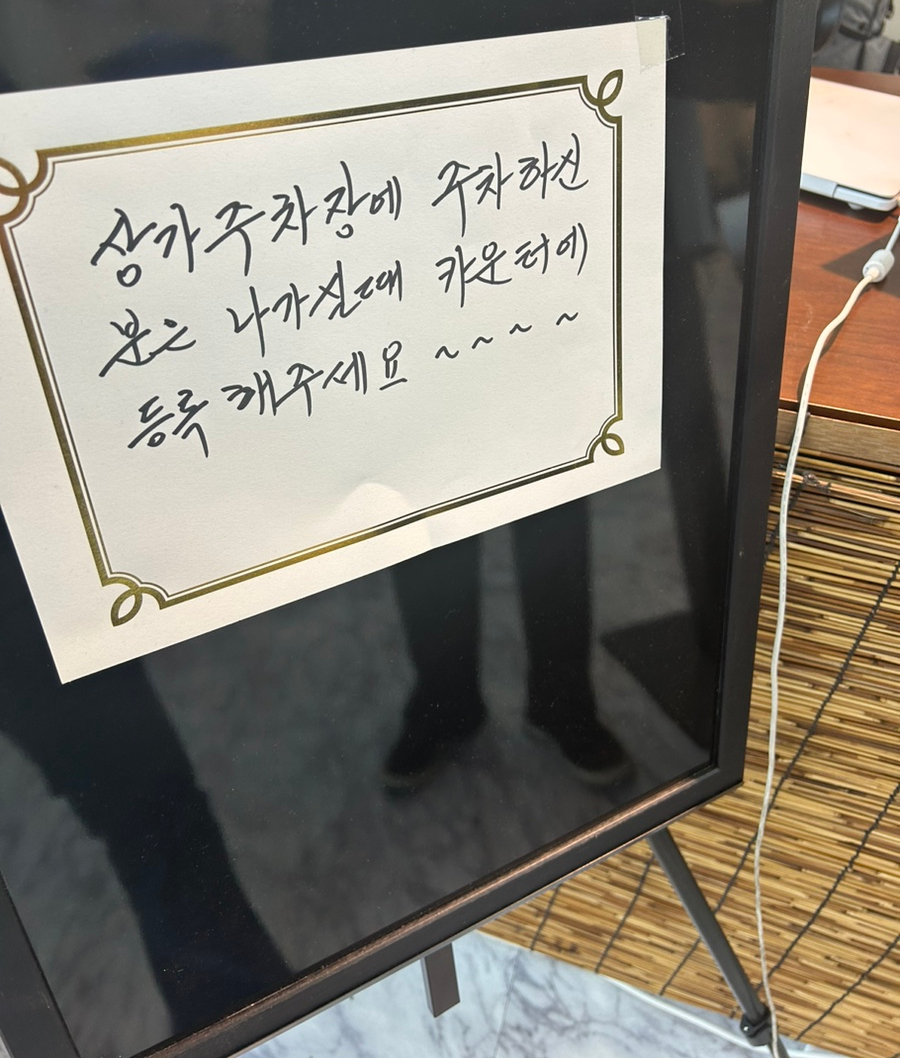 상가주차장에 주차하신
분은 나가실때 카운터에
등록해주세요 ~~~~